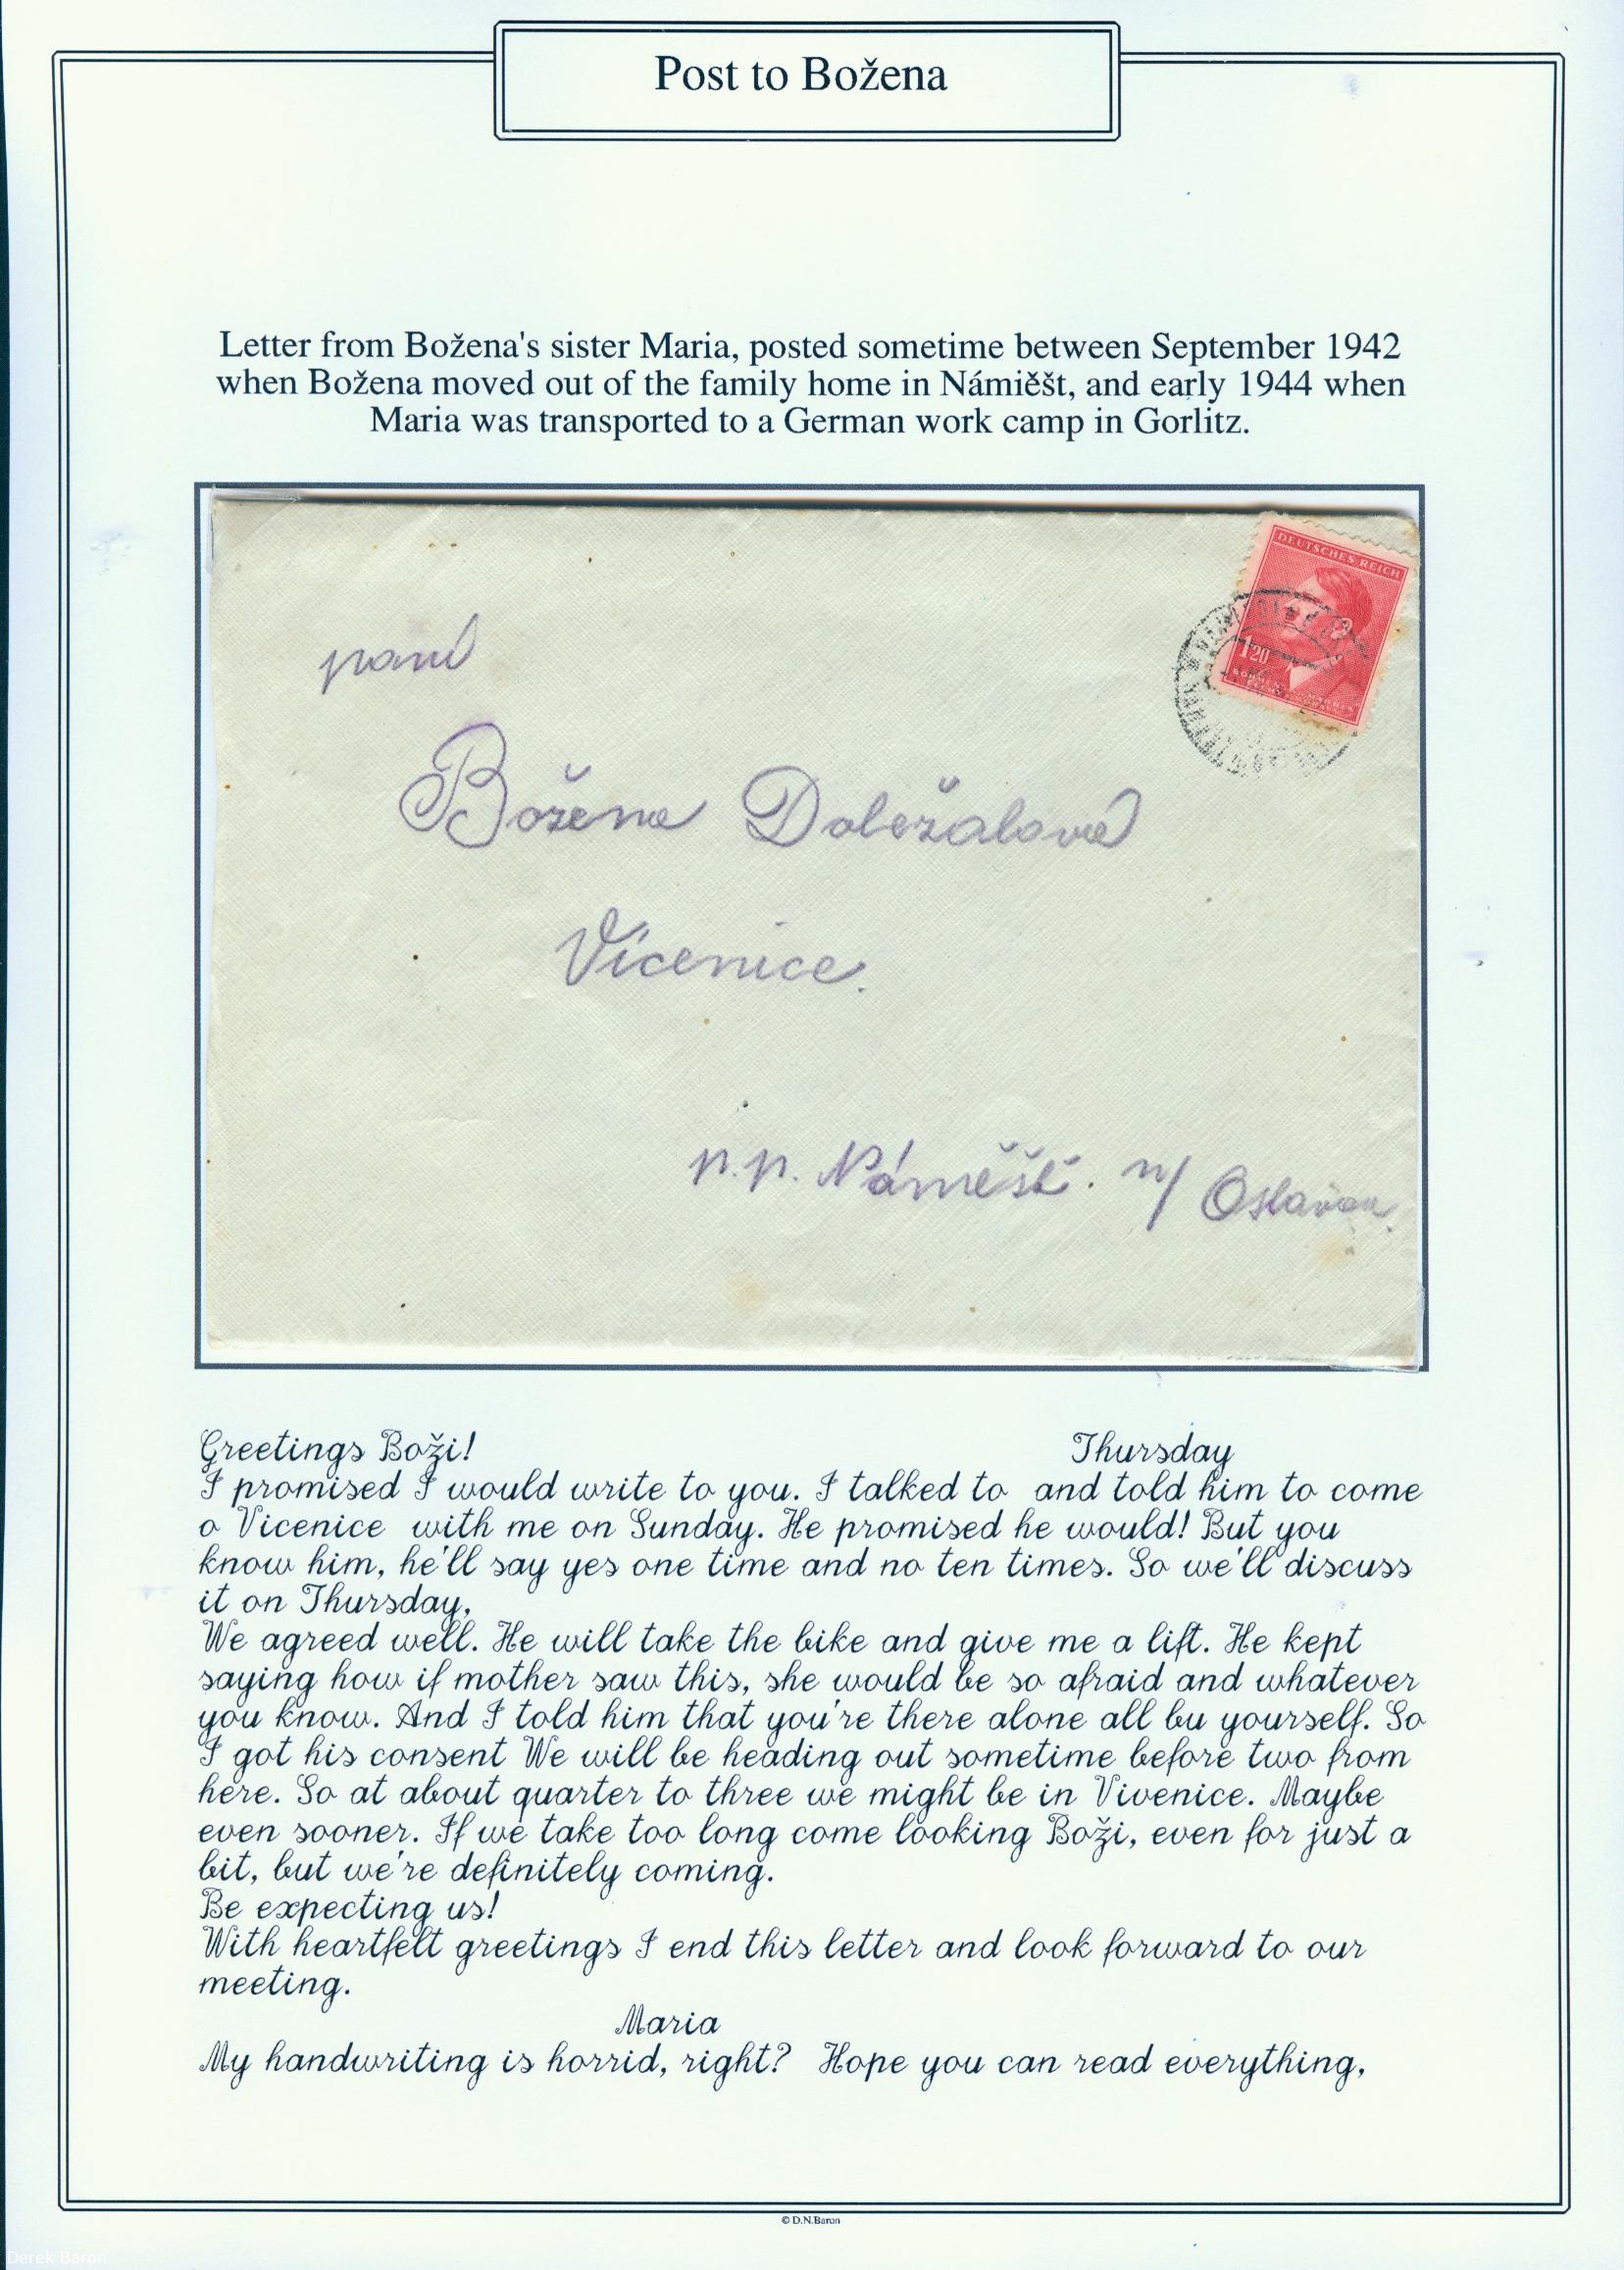 Post to Božena
Letter from Božena's sister Maria, posted sometime between September 1942
when Božena moved out of the family home in Námiěšt, and early 1944 when
Maria was transported to a German work camp in Gorlitz.
DEUTSCHES REICH
1 20
BÖHMEN u. MÄHREN
ČECHY a MORAVA
paní
Božena Doležalová
Vícenice.
p.p. Náměšť. n/ Oslavou.
Greetings Boži! Thursday
I promised I would write to you. I talked to and told him to come
o Vicenice with me on Sunday. He promised he would! But you
know him, he'll say yes one time and no ten times. So we'll discuss
it on Thursday,
We agreed well. He will take the bike and give me a lift. He kept
saying how if mother saw this, she would be so afraid and whatever
you know. And I told him that you're there alone all bu yourself. So
I got his consent We will be heading out sometime before two from
here. So at about quarter to three we might be in Vivenice. Maybe
even sooner. If we take too long come looking Boži, even for just a
bit, but we're definitely coming.
Be expecting us!
With heartfelt greetings I end this letter and look forward to our
meeting.
Maria
My handwriting is horrid, right? Hope you can read everything,
© D.N.Baron
Derek Baron